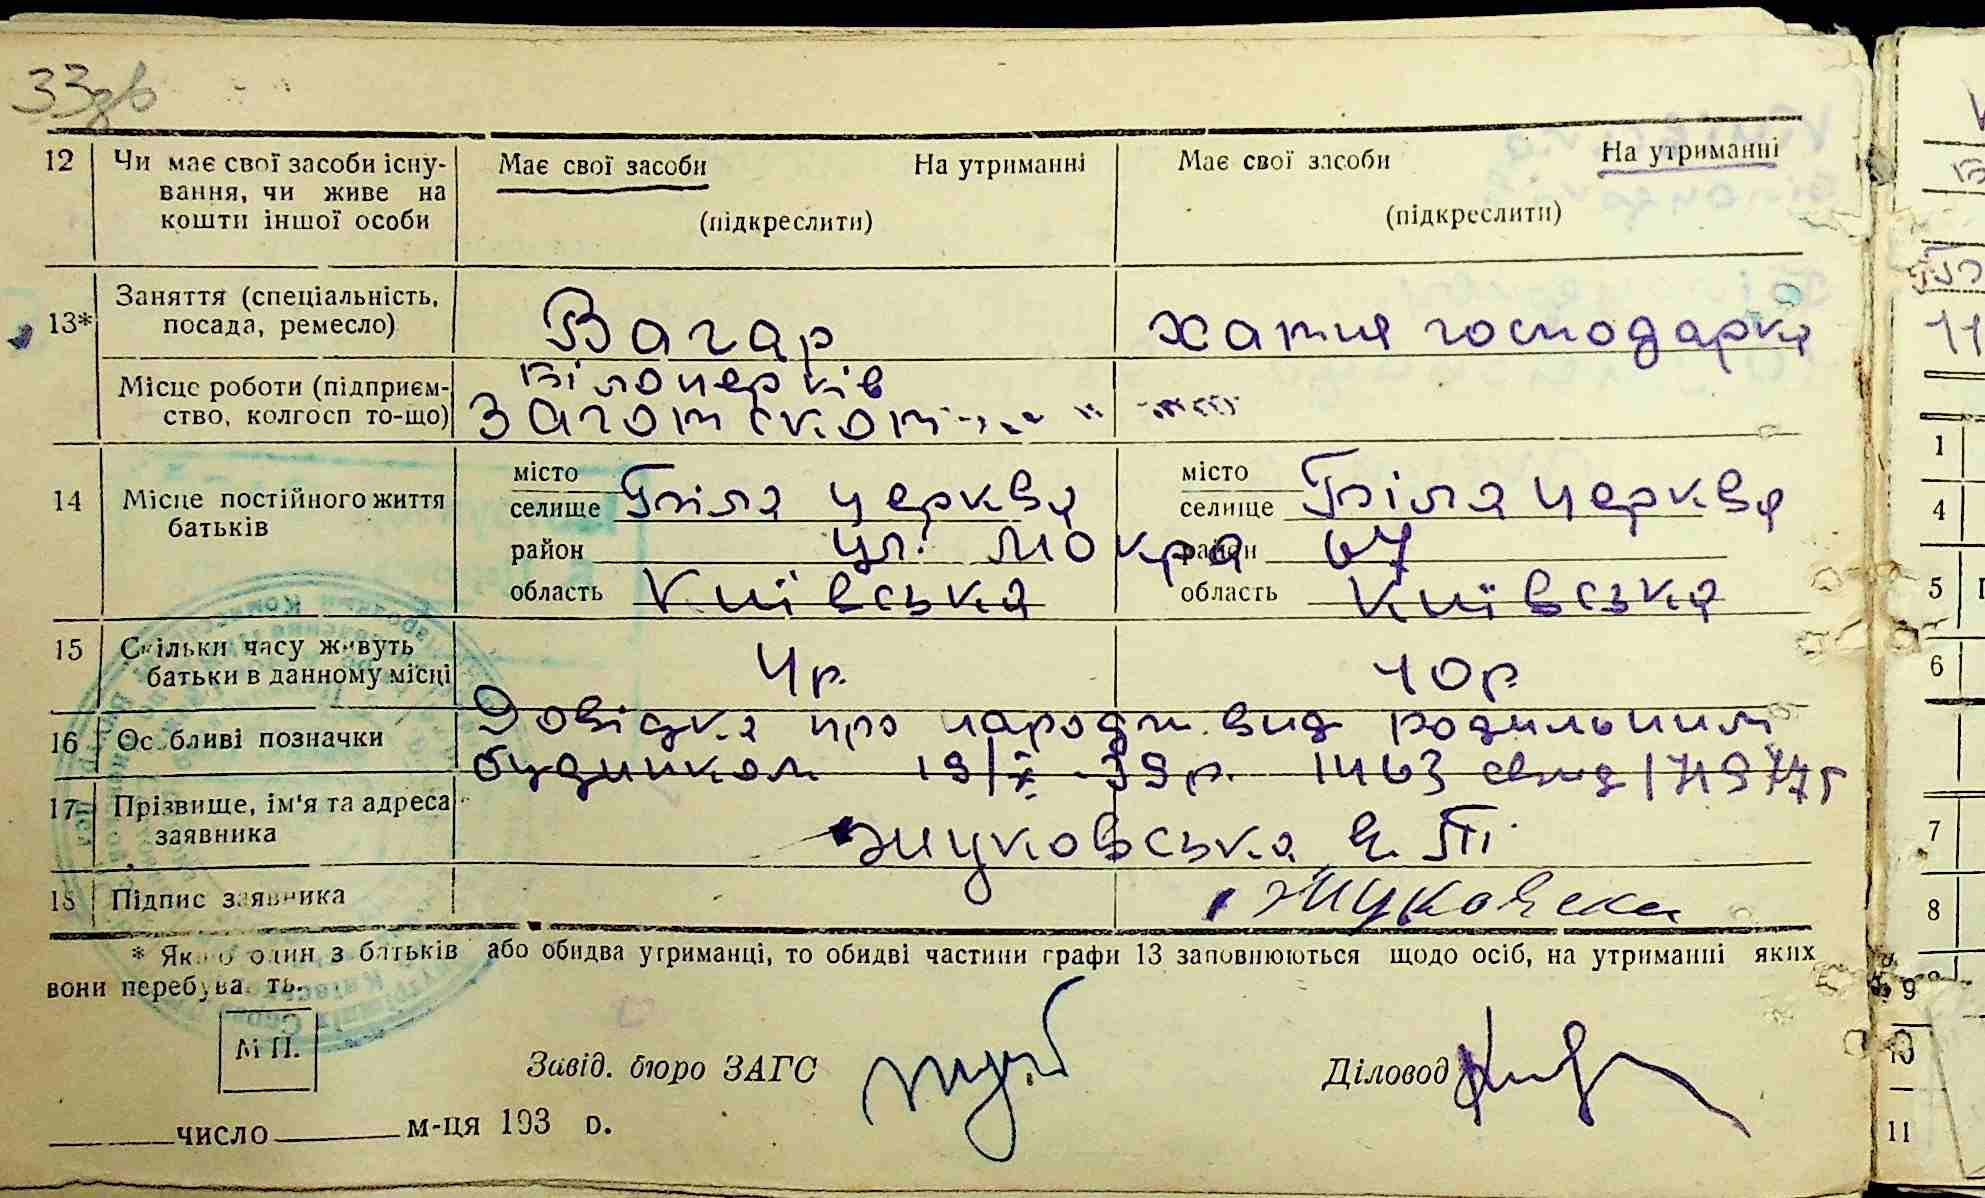 33зв
12 Чи має свої засоби існу- Має свої засоби На утриманні Має свої засоби На утриманні
вання, чи живе на
кошти іншої особи (підкреслити) (підкреслити)
13* Заняття (спеціальність, посада, ремесло) Вагар хатня господарка
Місце роботи (підприєм- Білоцерків
ство, колгосп то-що) Заготскот
14 Місце постійного життя батьків
місто місто
селище Біла церква селище Біла церква
район ул. Мокра район 67
область Київська область Київська
15 Скільки часу живуть
батьки в данному місці 4р. 40р.
16 Особливі позначки Довідка про народж. вид родильним
будинком 19/X-39р. 1463
17 Прізвище, ім'я та адреса
заявника Жуковська Є. П.
18 Підпис заявника Жуковска
* Якщо один з батьків або обидва утриманці, то обидві частини графи 13 заповнюються щодо осіб, на утриманні яких
вони перебувають.
М П.
Завід. бюро ЗАГС Діловод
число м-ця 193 р.
1
4
5
6
7
8
9
10
11